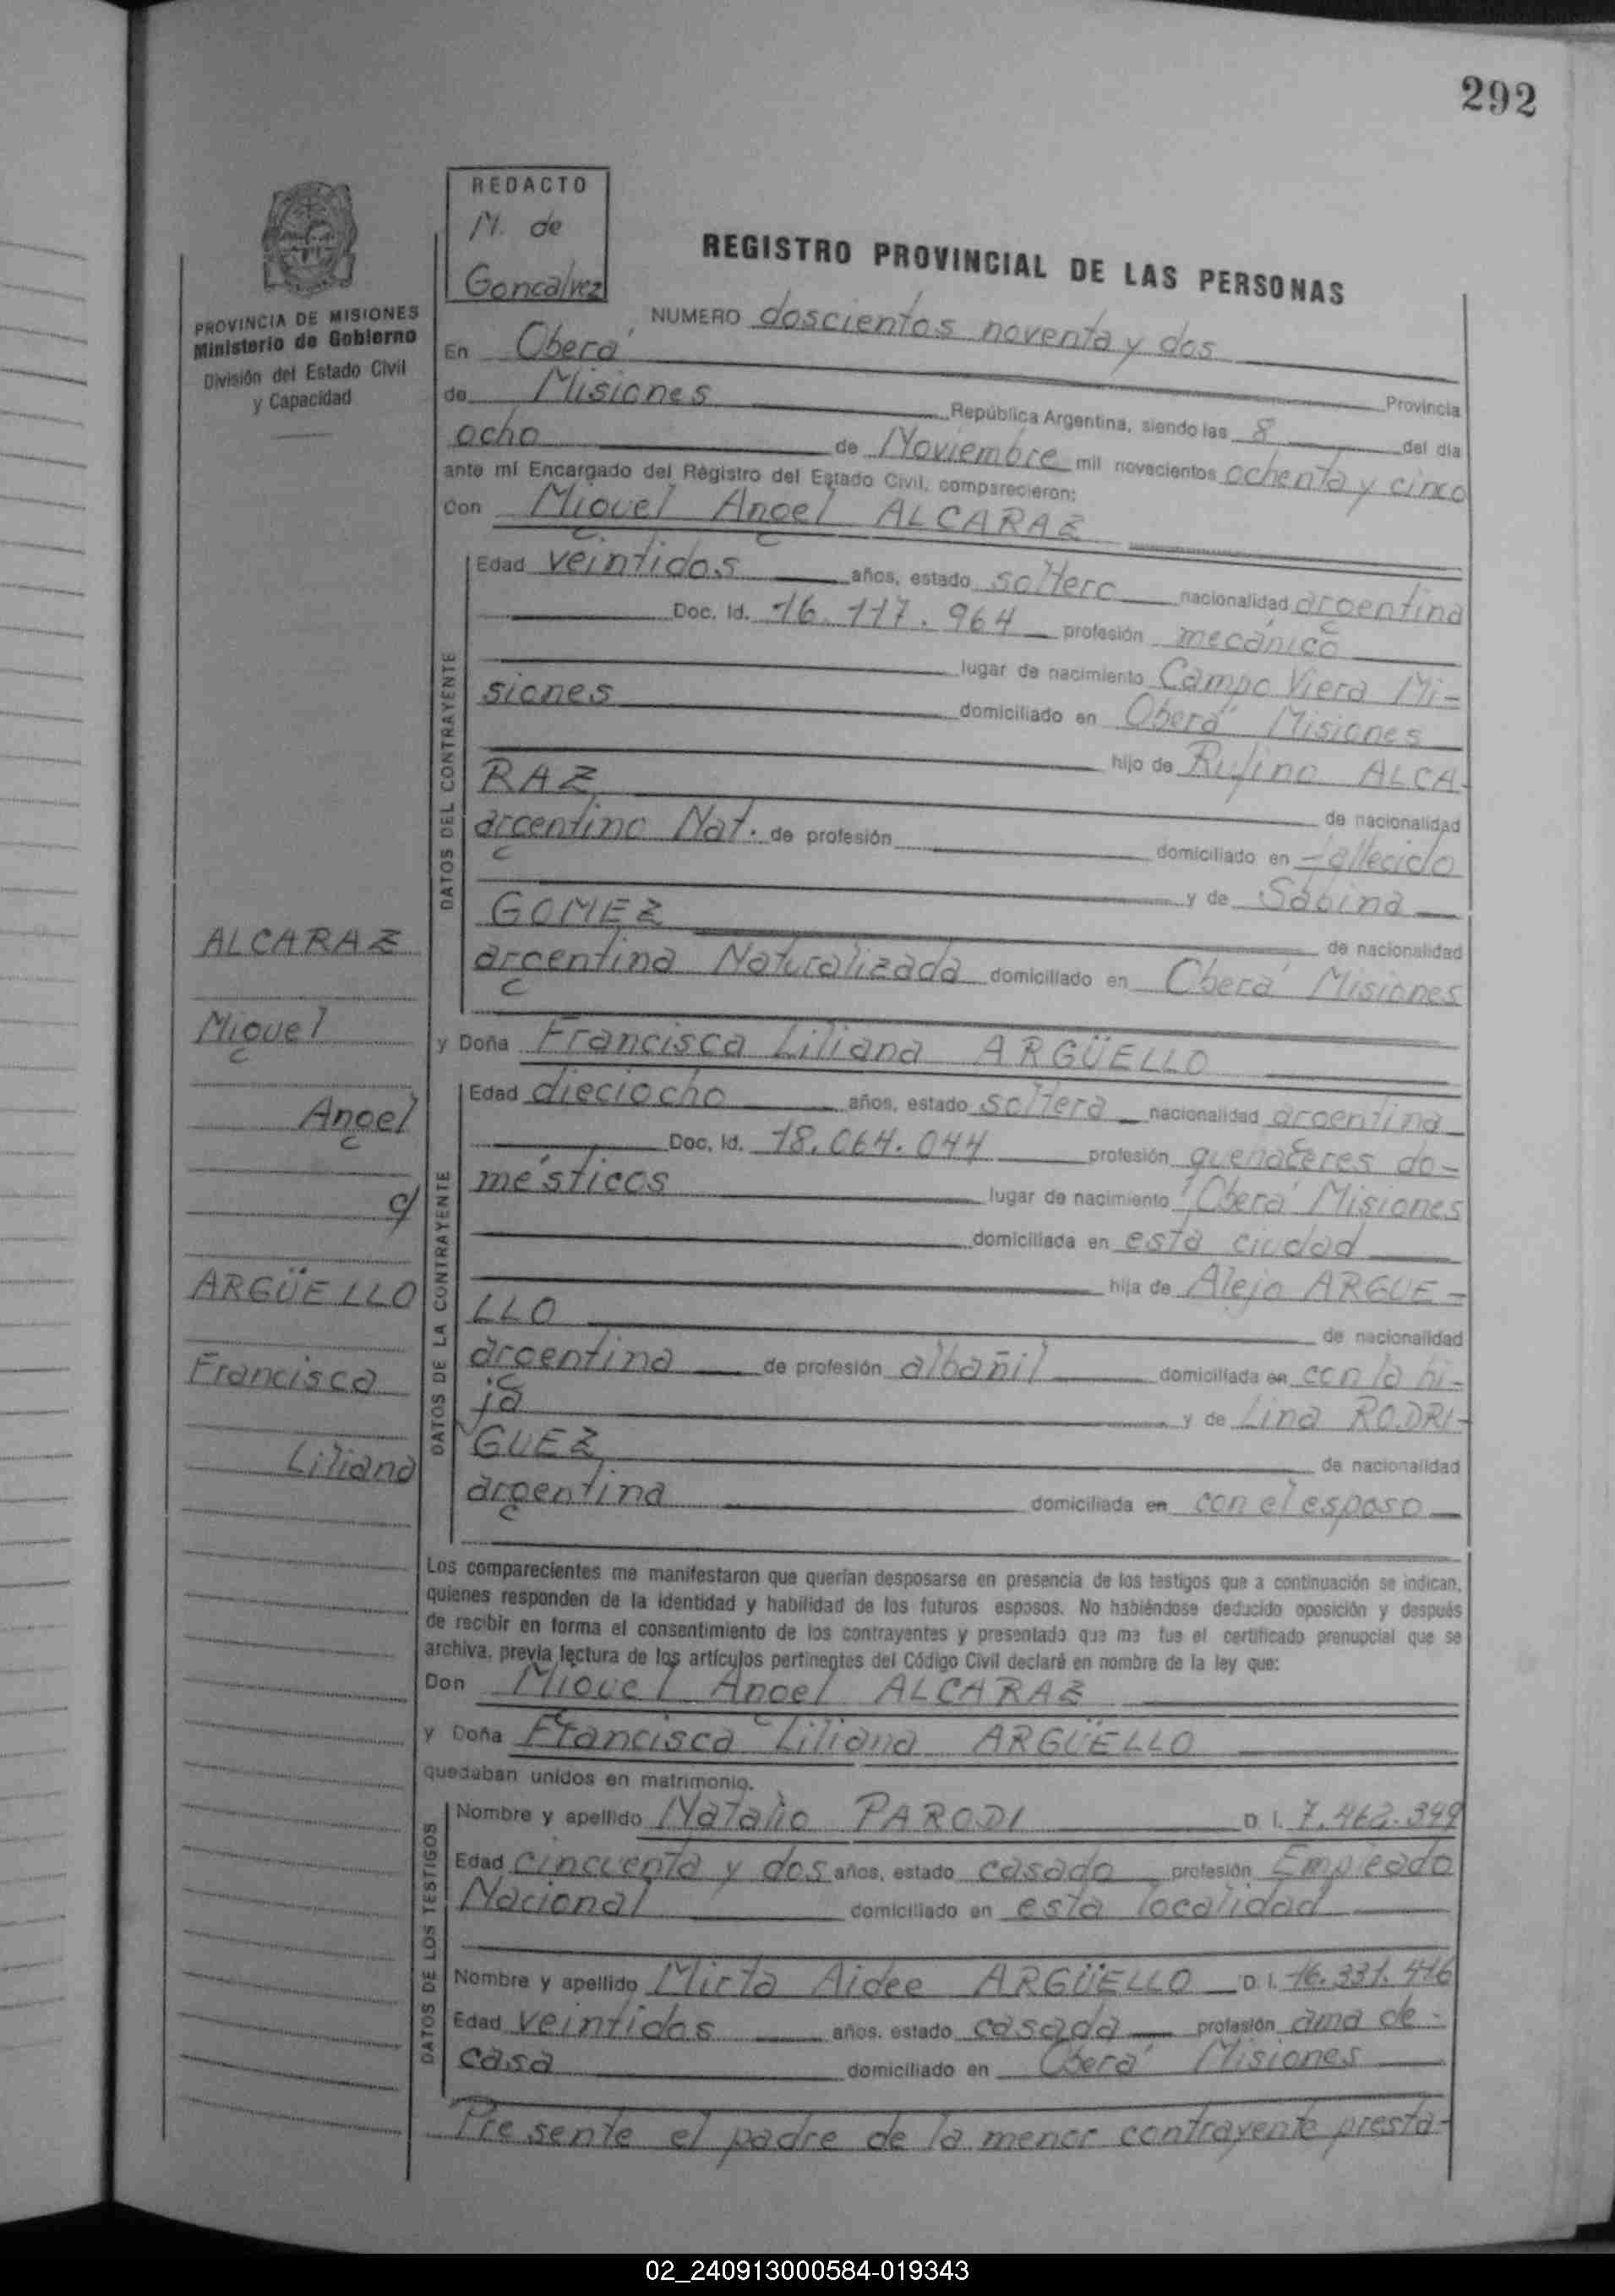 292
REDACTO
M. de
Goncalvez
REGISTRO PROVINCIAL DE LAS PERSONAS
PROVINCIA DE MISIONES
Ministerio de Gobierno
División del Estado Civil
y Capacidad
NUMERO doscientos noventa y dos
En Oberá Provincia
de Misiones República Argentina, siendo las 8 del día
ocho de Noviembre mil novecientos ochenta y cinco
ante mí Encargado del Registro del Estado Civil, comparecieron:
Don Miguel Angel ALCARAZ
DATOS DEL CONTRAYENTE
Edad veintidos años, estado soltero nacionalidad argentina
Doc. Id. 16.117.964 profesión mecánico
lugar de nacimiento Campo Viera Mi-
siones domiciliado en Oberá Misiones
hijo de Rufino ALCA-
RAZ de nacionalidad
argentino Nat. de profesión domiciliado en fallecido
y de Sabina
GOMEZ de nacionalidad
argentina Naturalizada domiciliado en Oberá Misiones
y Doña Francisca Liliana ARGÜELLO
DATOS DE LA CONTRAYENTE
Edad dieciocho años, estado soltera nacionalidad argentina
Doc. Id. 18.064.044 profesión quehaceres do-
mésticos lugar de nacimiento Oberá Misiones
domiciliada en esta ciudad
hija de Alejo ARGUE-
LLO de nacionalidad
argentina de profesión albañil domiciliada en con la hi-
ja y de Lina RODRI-
GUEZ de nacionalidad
argentina domiciliada en con el esposo
ALCARAZ
Miguel
Angel
c/
ARGÜELLO
Francisca
Liliana
Los comparecientes me manifestaron que querían desposarse en presencia de los testigos que a continuación se indican,
quienes responden de la identidad y habilidad de los futuros esposos. No habiéndose deducido oposición y después
de recibir en forma el consentimiento de los contrayentes y presentado que me fue el certificado prenupcial que se
archiva, previa lectura de los artículos pertinentes del Código Civil declaré en nombre de la ley que:
Don Miguel Angel ALCARAZ
y Doña Francisca Liliana ARGÜELLO
quedaban unidos en matrimonio.
DATOS DE LOS TESTIGOS
Nombre y apellido Natalio PARODI D. I. 7.462.349
Edad cincuenta y dos años, estado casado profesión Empleado
Nacional domiciliado en esta localidad
Nombre y apellido Mirta Aidee ARGÜELLO D. I. 16.331.416
Edad veintidos años, estado casada profesión ama de
casa domiciliado en Oberá Misiones
Presente el padre de la menor contrayente presta-
02_240913000584-019343